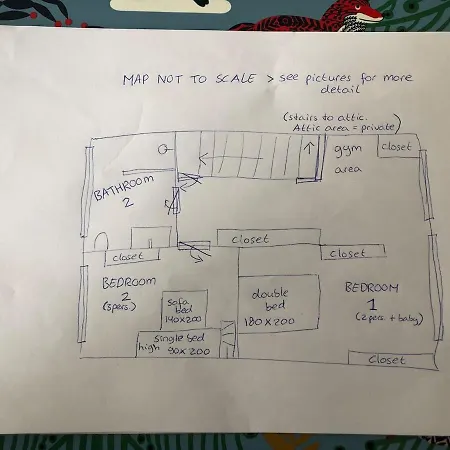 MAP NOT TO SCALE > see pictures for more
detail
(stairs to attic.
Attic area = private)
gym
area
closet
BATHROOM
2
closet
closet
closet
BEDROOM
2
(3pers.)
sofa
bed
140x200
single bed
high 90x200
double
bed
180x200
BEDROOM
1
(2pers. + baby)
closet